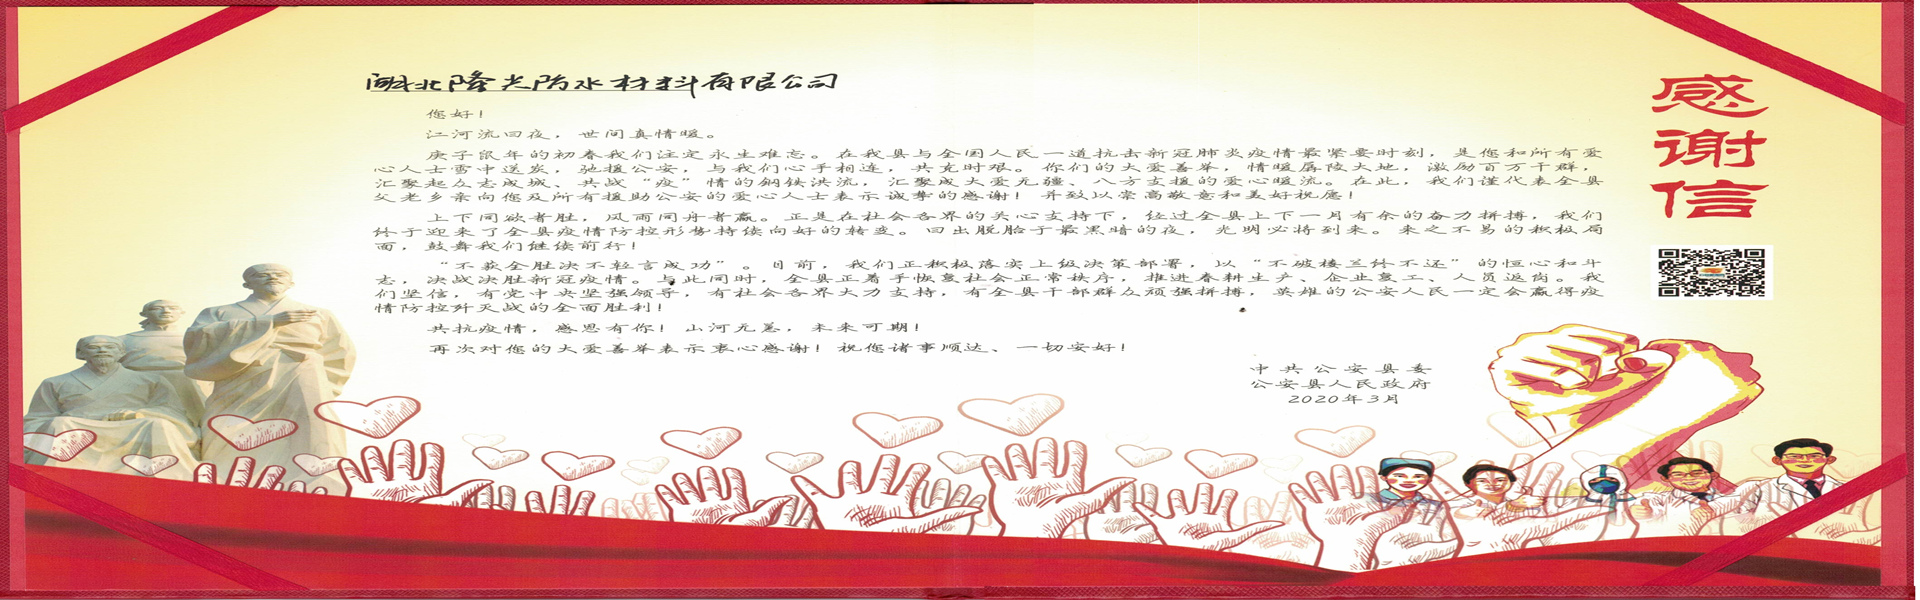 湖北隆光防水材料有限公司
您好!
江河流日夜,世间真情暖。
庚子鼠年的初春我们注定永生难忘。在我县与全国人民一道抗击新冠肺炎疫情最紧要时刻,是您和所有爱
心人士雪中送炭,驰援公安,与我们心手相连,共克时艰。你们的大爱善举,情暖孱陵大地,激励百万干群,
汇聚起众志成城、共战“疫”情的钢铁洪流,汇聚成大爱无疆、八方支援的爱心暖流。在此,我们谨代表全县
父老乡亲向您及所有援助公安的爱心人士表示诚挚的感谢!并致以崇高敬意和美好祝愿!
上下同欲者胜,风雨同舟者赢。正是在社会各界的关心支持下,经过全县上下一月有余的奋力拼搏,我们
终于迎来了全县疫情防控形势持续向好的转变。日出脱胎于最黑暗的夜,光明必将到来。来之不易的积极局
面,鼓舞我们继续前行!
“不获全胜决不轻言成功”。目前,我们正积极落实上级决策部署,以“不破楼兰终不还”的恒心和斗
志,决战决胜新冠疫情。与此同时,全县正着手恢复社会正常秩序,推进春耕生产、企业复工、人员返岗。我
们坚信,有党中央坚强领导,有社会各界大力支持,有全县干部群众顽强拼搏,英雄的公安人民一定会赢得疫
情防控歼灭战的全面胜利!
共抗疫情,感恩有你!山河无恙,未来可期!
再次对您的大爱善举表示衷心感谢!祝您诸事顺达、一切安好!
中共公安县委
公安县人民政府
2020年3月
感
谢
信